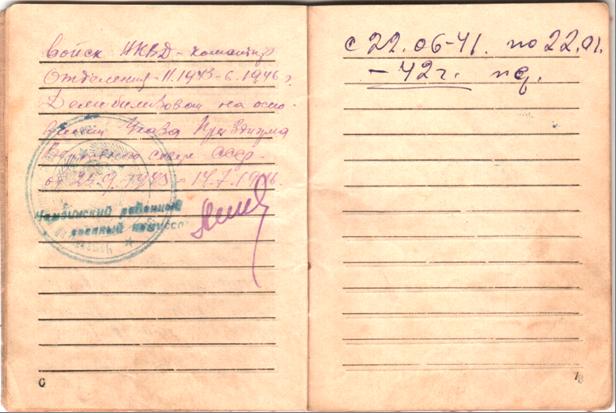 войск НКВД - командир
Отделения - II.1943 - 6.1946 г.
Демобилизован на осно-
вании Указа Президиума
Верховного Совета СССР
от 25.9.1945 - 14.7.1946.
районный
военный комисса
6
с 22.06-41. по 22.01.
-42 г.